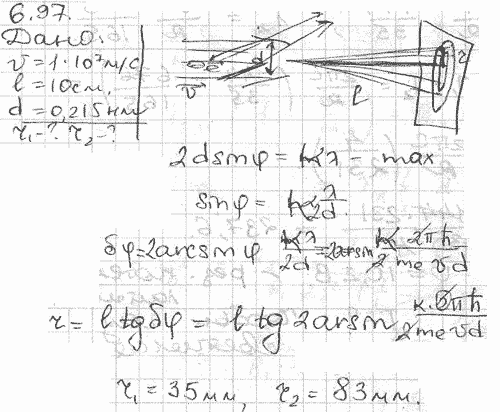 6.97.
Дано:
v = 1·10⁷ м/с
l = 10см,
d = 0,215нм
r₁-? r₂-?
v d l r
2dsinφ = kλ - max
sinφ = k λ/2d.
δφ = 2arcsinφ kλ/2d = 2arcsin k·2πħ/2mevd
r = l tgδφ = l tg 2arsin k·2πħ/2mevd
r₁ = 35мм, r₂ = 83мм.